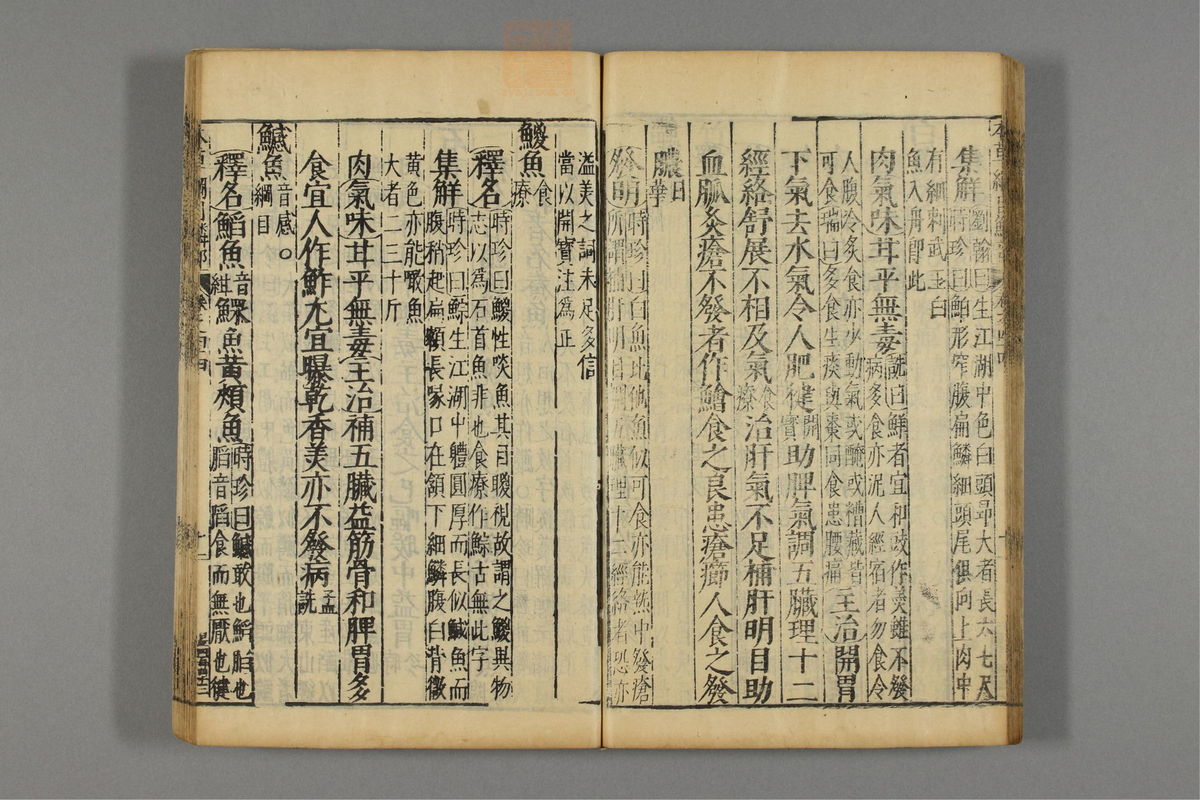 集解 劉翰曰生江湖中色白頭昻大者長六七尺
時珍曰鮊形窄腹扁鱗細頭尾俱向上肉中
有細刺武王白
魚入舟即此
肉氣味甘平無毒 詵曰鮮者宜和豉作羹雖不發
病多食亦泥人經宿者勿食令
人腹冷炙食亦少動氣或醃或糟藏皆
可食瑞曰多食生痰與棗同食患腰痛
主治開胃
下氣去水氣令人肥健 開寶
助脾氣調五臟理十二
經絡舒展不相及氣 食療
治肝氣不足補肝明目助
血脉灸瘡不發者作鱠食之良患瘡癤人食之發
膿 日華
發明 時珍曰白魚比他魚似可食亦能熱中發瘡
所謂補肝明目調五臟理十二經絡者恐亦
溢美之詞未足多信
當以開寶注爲正
鯼魚 食療
釋名 時珍曰鯼性啖魚其目䁓視故謂之鯼異物
志以爲石首魚非也食療作鯮古無此字
集解 時珍曰鯮生江湖中體圓厚而長似鱤魚而
腹稍起扁額長喙口在頷下細鱗腹白背微
黃色亦能噉魚
大者二三十斤
肉氣味甘平無毒主治補五臟益筋骨和脾胃多
食宜人作鮓尤宜曝乾香美亦不發病 孟詵
鱤魚 音感○
綱目
釋名鮥魚 音紺
鰥魚黃頰魚 時珍曰鱤敢也鮥䐄也
䐄音䧟食而無厭也健